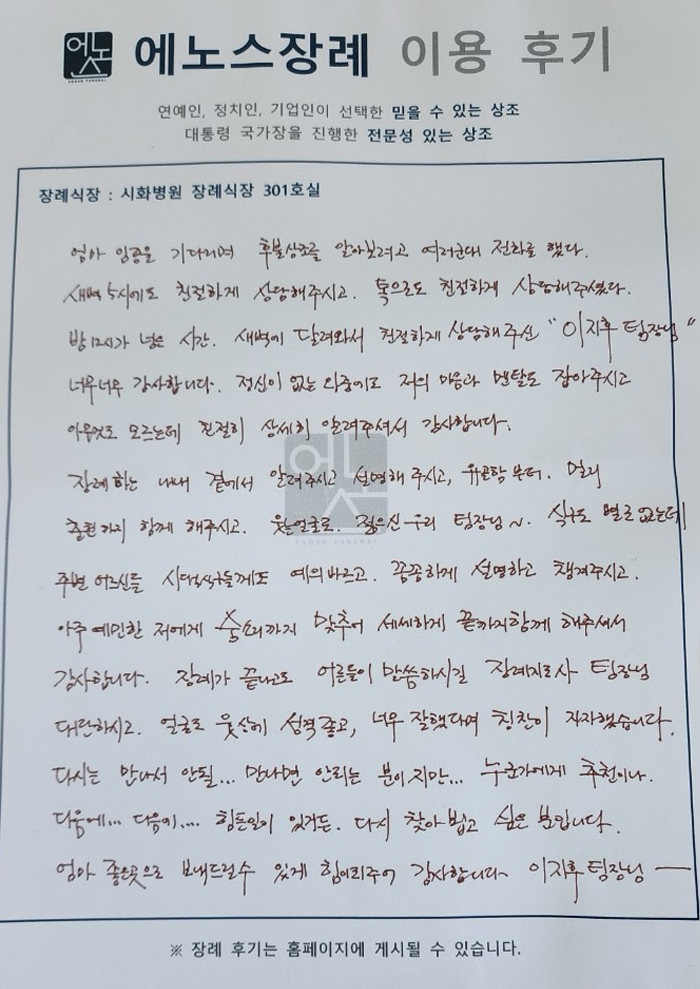 에노스장례 이용 후기
연예인, 정치인, 기업인이 선택한 믿을 수 있는 상조
대통령 국가장을 진행한 전문성 있는 상조
장례식장 : 시화병원 장례식장 301호실
엄마 임종을 기다리며 후불상조를 알아보려고 여러군데 전화를 했다.
새벽 5시에도 친절하게 상담해주시고. 톡으로도 친절하게 상담해주셨다.
밤12시가 넘은 시간. 새벽에 달려와서 친절하게 상담해주신 "이지후 팀장님"
너무너무 감사합니다. 정신이 없는 와중에도 저의 마음과 멘탈도 잡아주시고
아무것도 모르는데 친절히 상세히 알려주셔서 감사합니다.
장례하는 내내 곁에서 알려주시고 설명해 주시고, 유골함부터. 멀리
까지 함께 해주시고. 웃는얼굴로. 젊으신 우리 팀장님~. 식구도 별로 없는데
주변 어르신들 시댁식구들께도 예의바르고. 꼼꼼하게 설명하고 챙겨주시고.
아주 예민한 저에게 숨소리까지 맞추어 세세하게 끝까지함께 해주셔서
감사합니다. 장례가 끝나고도 어른들이 말씀하시길 장례지도사 팀장님
대단하시고. 얼굴도 웃상에 성격좋고, 너무 잘했다며 칭찬이 자자했습니다.
다시는 만나서 안될... 만나면 안되는 분이지만... 누군가에게 추천이나.
다음에... 다음에.... 힘든일이 있거든. 다시 찾아 뵙고 싶은 분입니다.
엄마 좋은곳으로 보내드릴수 있게 힘이되주어 감사합니다 이지후팀장님
※ 장례 후기는 홈페이지에 게시될 수 있습니다.